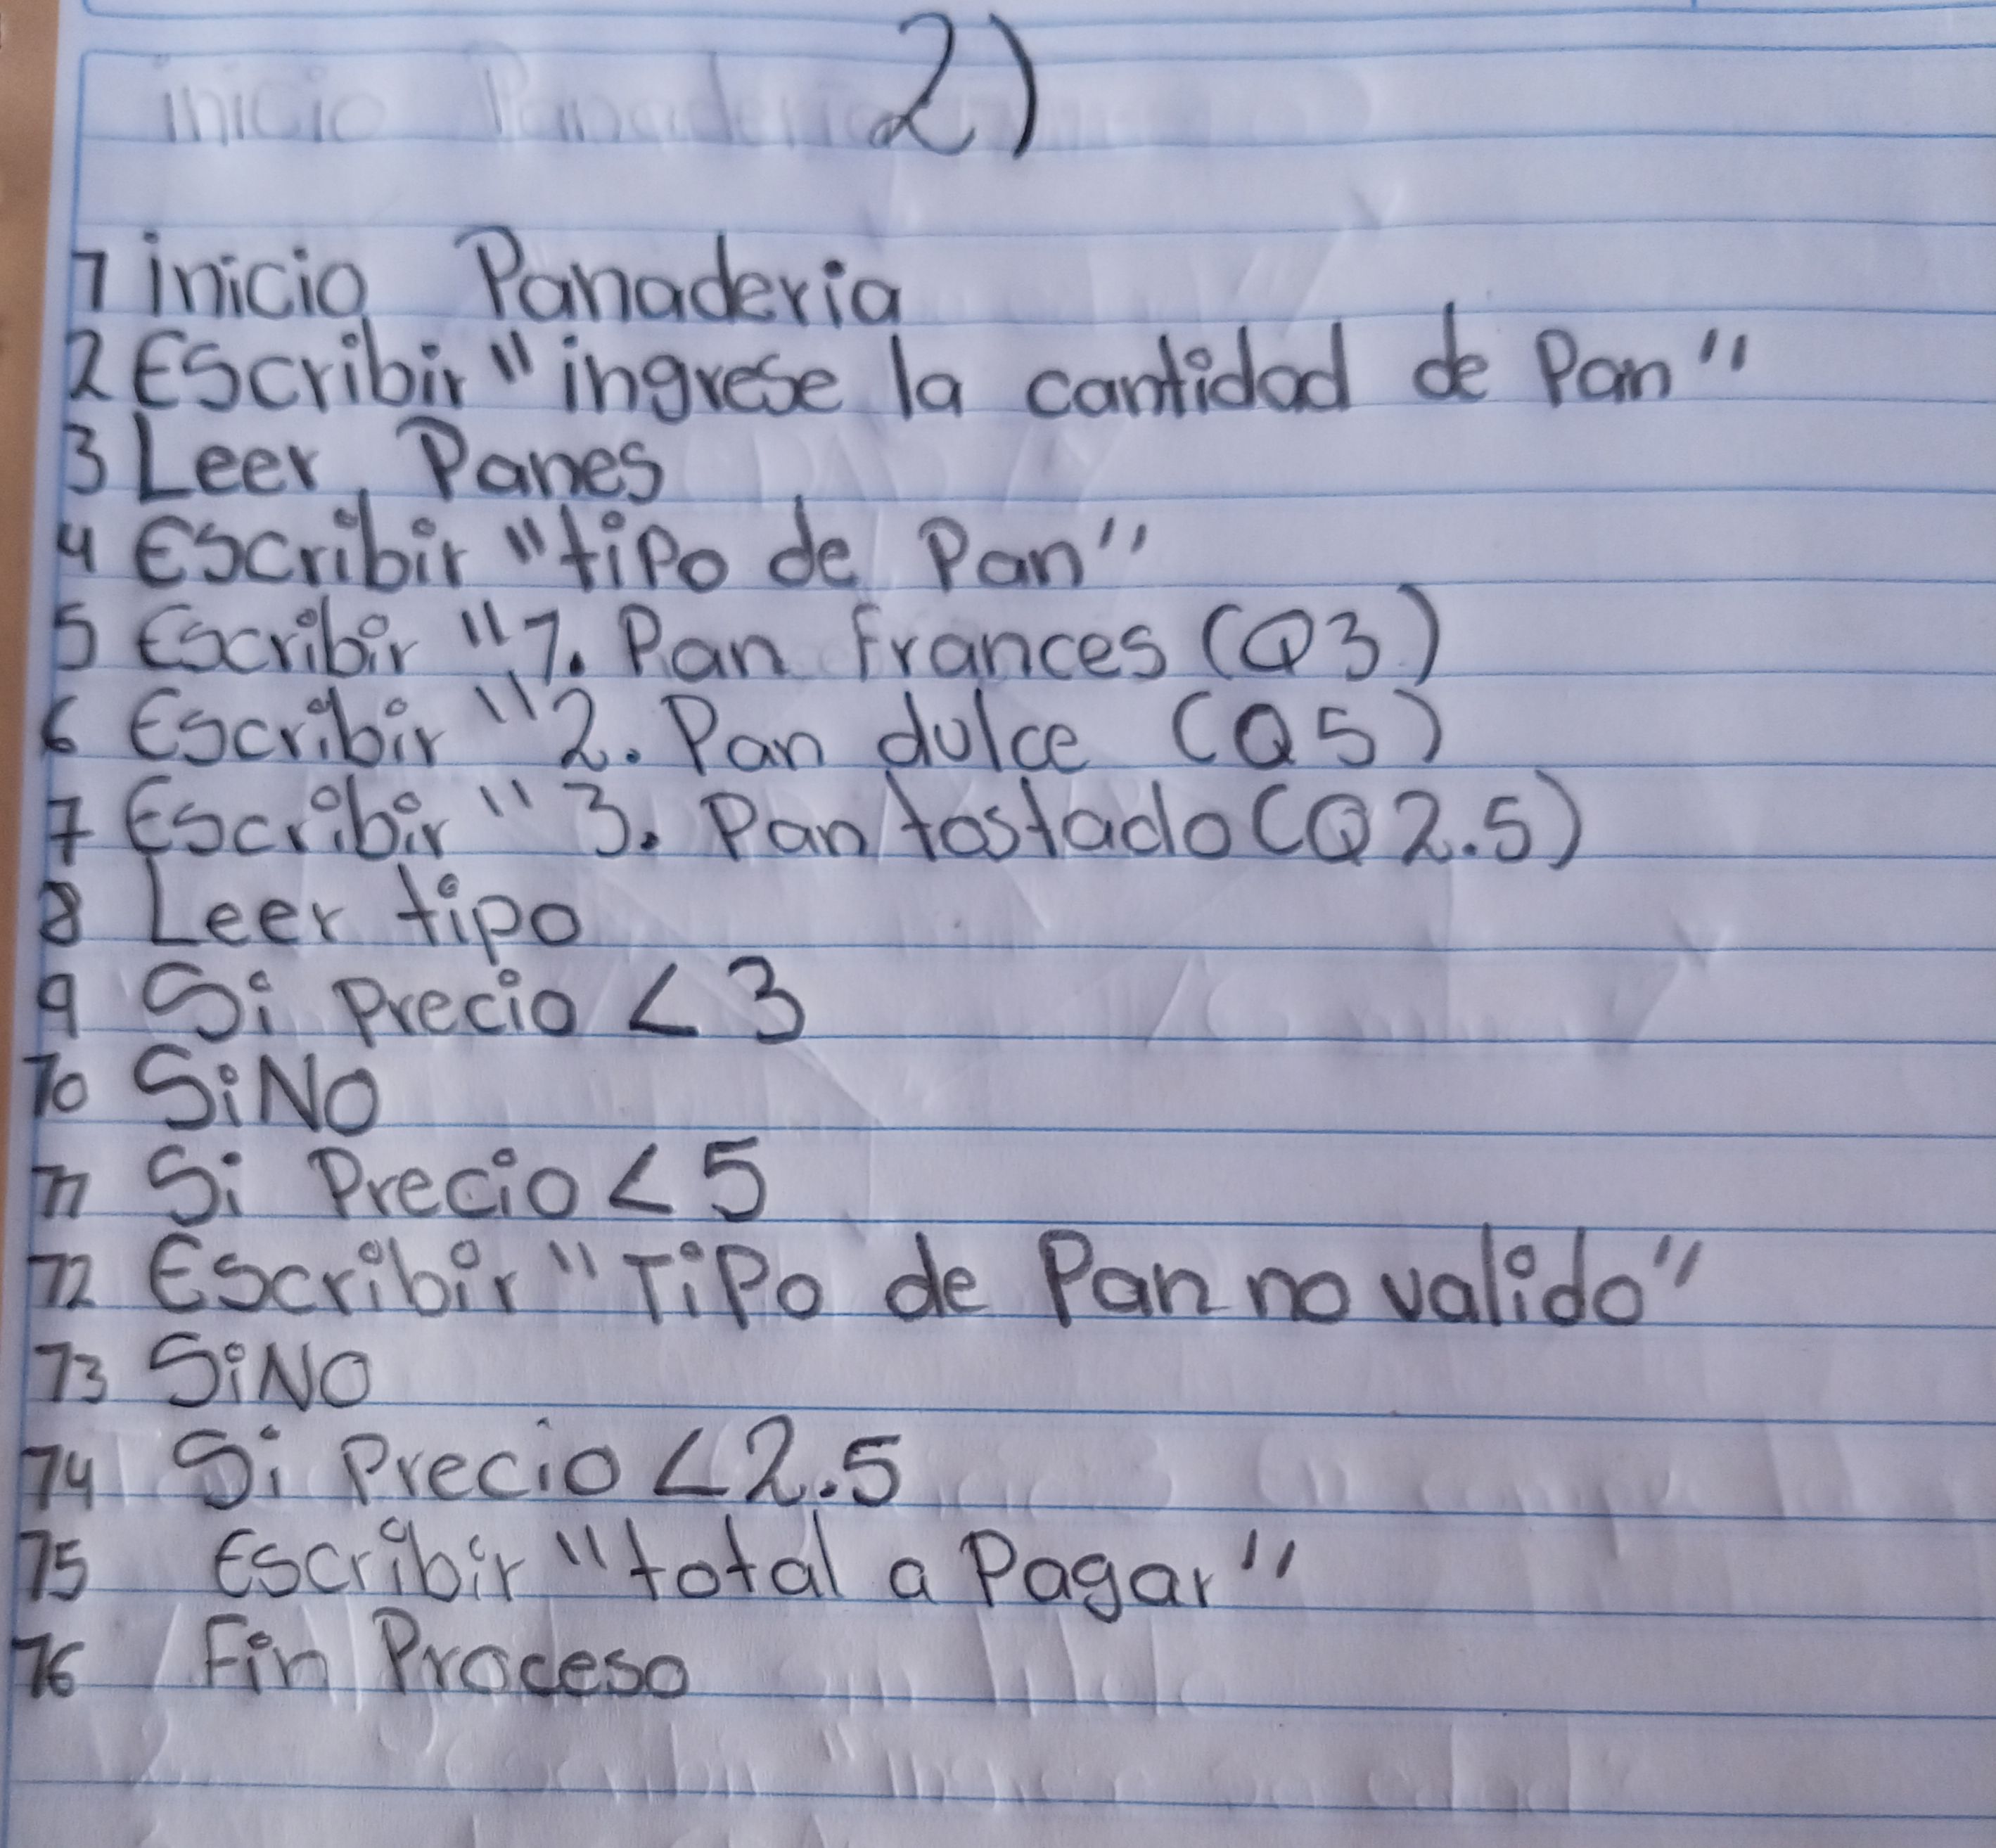 2)
inicio Panaderia
1 inicio Panaderia
2 Escribir "ingrese la cantidad de Pan"
3 Leer Panes
4 Escribir "tipo de Pan"
5 Escribir "1. Pan Frances (Q3)
6 Escribir "2. Pan dulce (Q5)
7 Escribir "3. Pan tostado (Q2.5)
8 Leer tipo
9 Si Precio < 3
10 SiNO
11 Si Precio < 5
12 Escribir "Tipo de Pan no valido"
13 SiNO
14 Si Precio < 2.5
15 Escribir "total a Pagar"
16 Fin Proceso